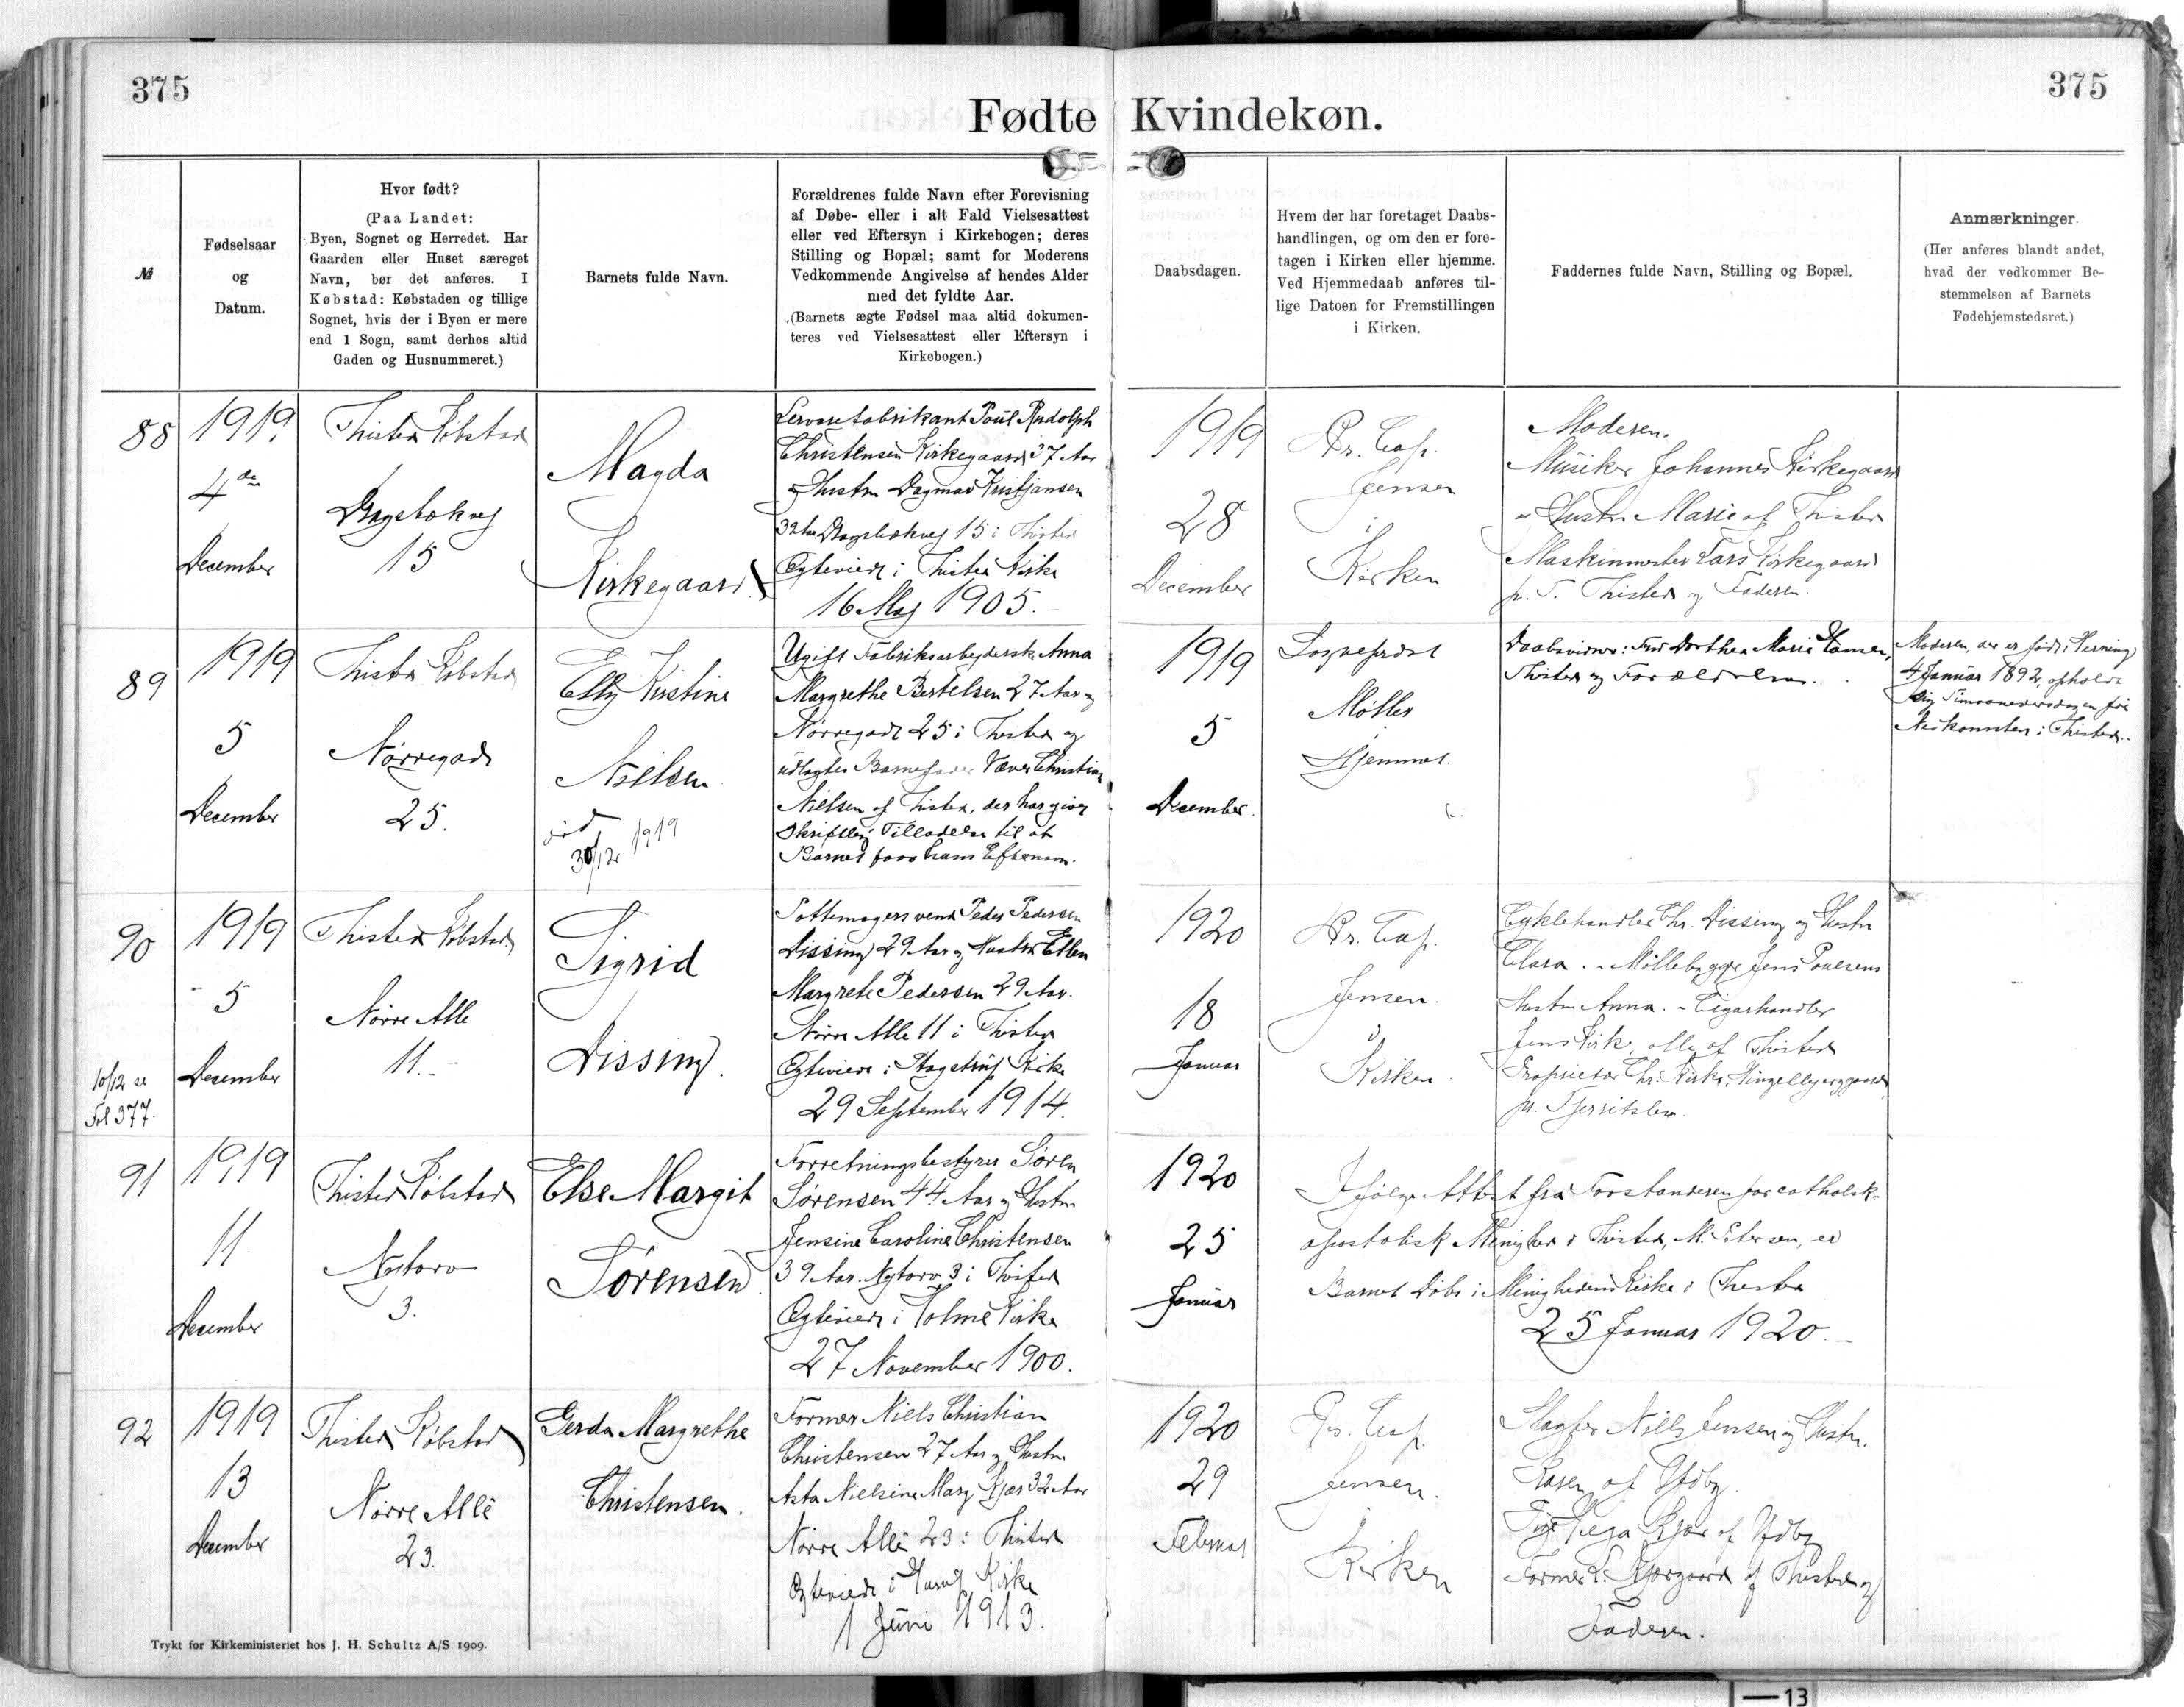 375
375
Fødte Kvindekøn.
№
Fødselsaar
og
Datum.
Hvor født?
(Paa Landet:
Byen, Sognet og Herredet. Har
Gaarden eller Huset særeget
Navn, bør det anføres. I
Købstad: Købstaden og tillige
Sognet, hvis der i Byen er mere
end 1 Sogn, samt derhos altid
Gaden og Husnummeret.)
Barnets fulde Navn.
Forældrenes fulde Navn efter Forevisning
af Døbe- eller i alt Fald Vielsesattest
eller ved Eftersyn i Kirkebogen; deres
Stilling og Bopæl; samt for Moderens
Vedkommende Angivelse af hendes Alder
med det fyldte Aar.
(Barnets ægte Fødsel maa altid dokumen-
teres ved Vielsesattest eller Eftersyn i
Kirkebogen.)
Daabsdagen.
Hvem der har foretaget Daabs-
handlingen, og om den er fore-
tagen i Kirken eller hjemme.
Ved Hjemmedaab anføres til-
lige Datoen for Fremstillingen
i Kirken.
Faddernes fulde Navn, Stilling og Bopæl.
Anmærkninger.
(Her anføres blandt andet,
hvad der vedkommer Be-
stemmelsen af Barnets
Fødehjemstedsret.)
88
1919.
4de
December
Thisted Købstad
Dragsbækvej
15
Magda
Kirkegaard.
Lervarefabrikant Poul Rudolph
Christensen Kirkegaard 37 Aar
og Hustru Dagmar Kristjansen
32 Aar Dragsbækvej 15 i Thisted
Ægteviede i Thisted Kirke
16 Maj 1905.
1919
28
December
Pr. Cap.
Jensen
i
Kirken
Moderen.
Musiker Johannes Kirkegaard
og Hustru Marie af Thisted
Maskinmester Lars Kirkegaard
p. T. Thisted og Faderen.
89
1919
5
December
Thisted Købstad
Nørregade
25.
Elly Kirstine
Nielsen
død
30/12 1919
Ugift Fabriksarbejderske Anna
Margrethe Bertelsen 27 Aar og
Nørregade 25 i Thisted og
udlagte Barnefader Væver Christian
Nielsen af Thisted, der har givet
skriftlig Tilladelse til at
Barnet faar hans Efternavn.
1919
5
December.
Sognepræst
Møller
i
Hjemmet.
Daabsvidner: Fru Dorthea Marie Hansen,
Thisted og Forældrene.
Moderen, der er født i Herning
4 Januar 1892, opholdt
sig Timaanedersdagen før
Nedkomsten i Thisted.
90
10/12 se
Fol 377.
1919
5
December
Thisted Købstad
Nørre Alle
11.
Sigrid
Dissing.
Pottemagersvend Peder Pedersen
Dissing 29 Aar og Hustru Ellen
Margrete Pedersen 29 Aar.
Nørre Alle 11 i Thisted
Ægteviede i Kirke
29 September 1914.
1920
18
Januar
Pr. Cap.
Jensen.
i
Kirken
Cyklehandler Chr. Dissing og Hustru
Clara. - Møllebygger Jens Poulsens
Hustru Anna. - Cigarhandler
Jens Kirk, alle af Thisted
Proprietær Chr. Kirk,
pr. Fjerritslev.
91
1919
11
December
Thisted Købstad
Nytorv
3.
Else Margit
Sørensen
Forretningsbestyrer Søren
Sørensen 44 Aar og Hustru
Jensine Caroline Christensen
39 Aar. Nytorv 3 i Thisted
Ægteviede i Holme Kirke
27 November 1900.
1920
25
Januar
Ifølge Attest fra Forstanderen for catholsk-
apostolisk Menighed i Thisted, M. Petersen, er
Barnet døbt i Menighedens Kirke i Thisted
25 Januar 1920.
92
1919
13
December
Thisted Købstad
Nørre Allé
23.
Gerda Margrethe
Christensen.
Former Niels Christian
Christensen 27 Aar og Hustru
Asta Nielsine Marg. Kjær 32 Aar
Nørre Allé 23 i Thisted
Ægteviede i Kirke
1 Juni 1913.
1920
29
Februar
Pr. Cap.
Jensen.
i
Kirken
Slagter Niels Jensen og Hustru
Karen af Ydby.
Pige Kjær af Ydby
Former Kjærgaard af Thisted og
Faderen.
Trykt for Kirkeministeriet hos J. H. Schultz A/S 1909.
13